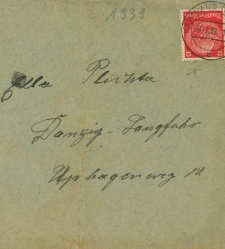 1939
Ella Plichta
Danzig-Langfuhr
Uphagenweg 12